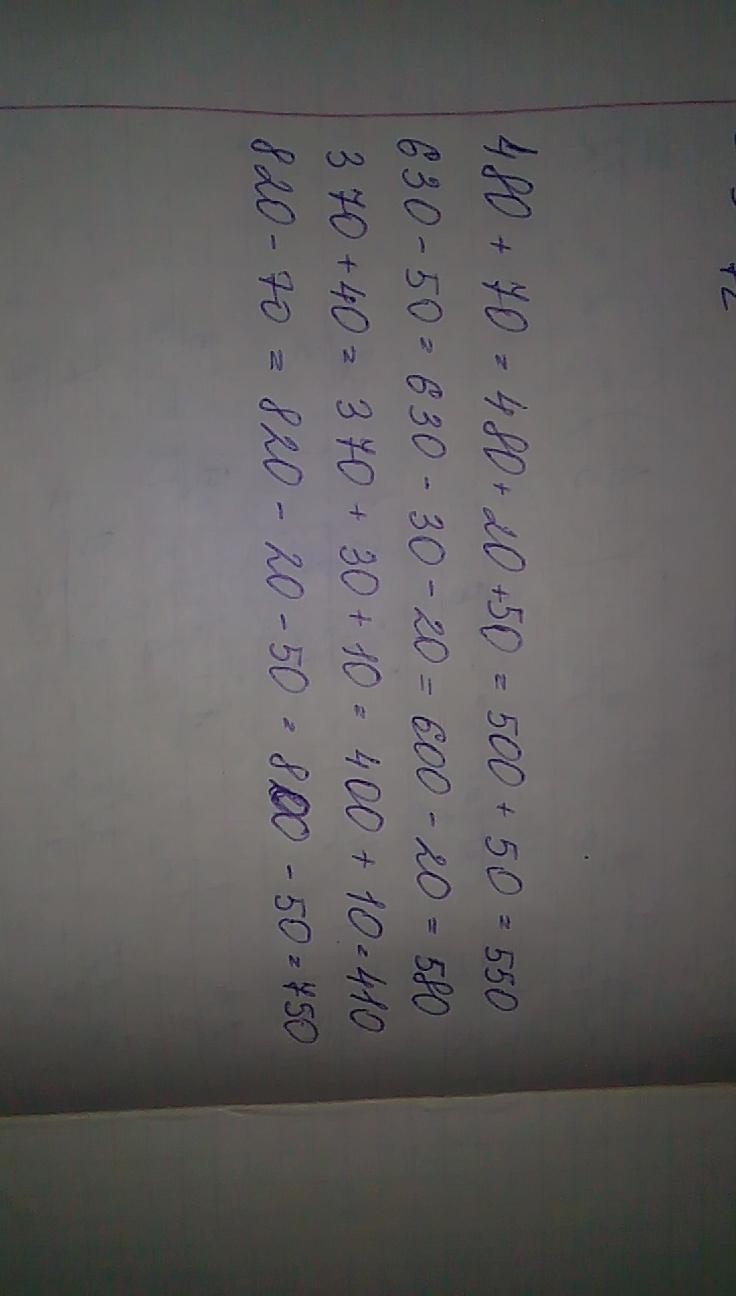 480 + 70 = 480 + 20 + 50 = 500 + 50 = 550
630 - 50 = 630 - 30 - 20 = 600 - 20 = 580
370 + 40 = 370 + 30 + 10 = 400 + 10 = 410
820 - 70 = 820 - 20 - 50 = 800 - 50 = 750